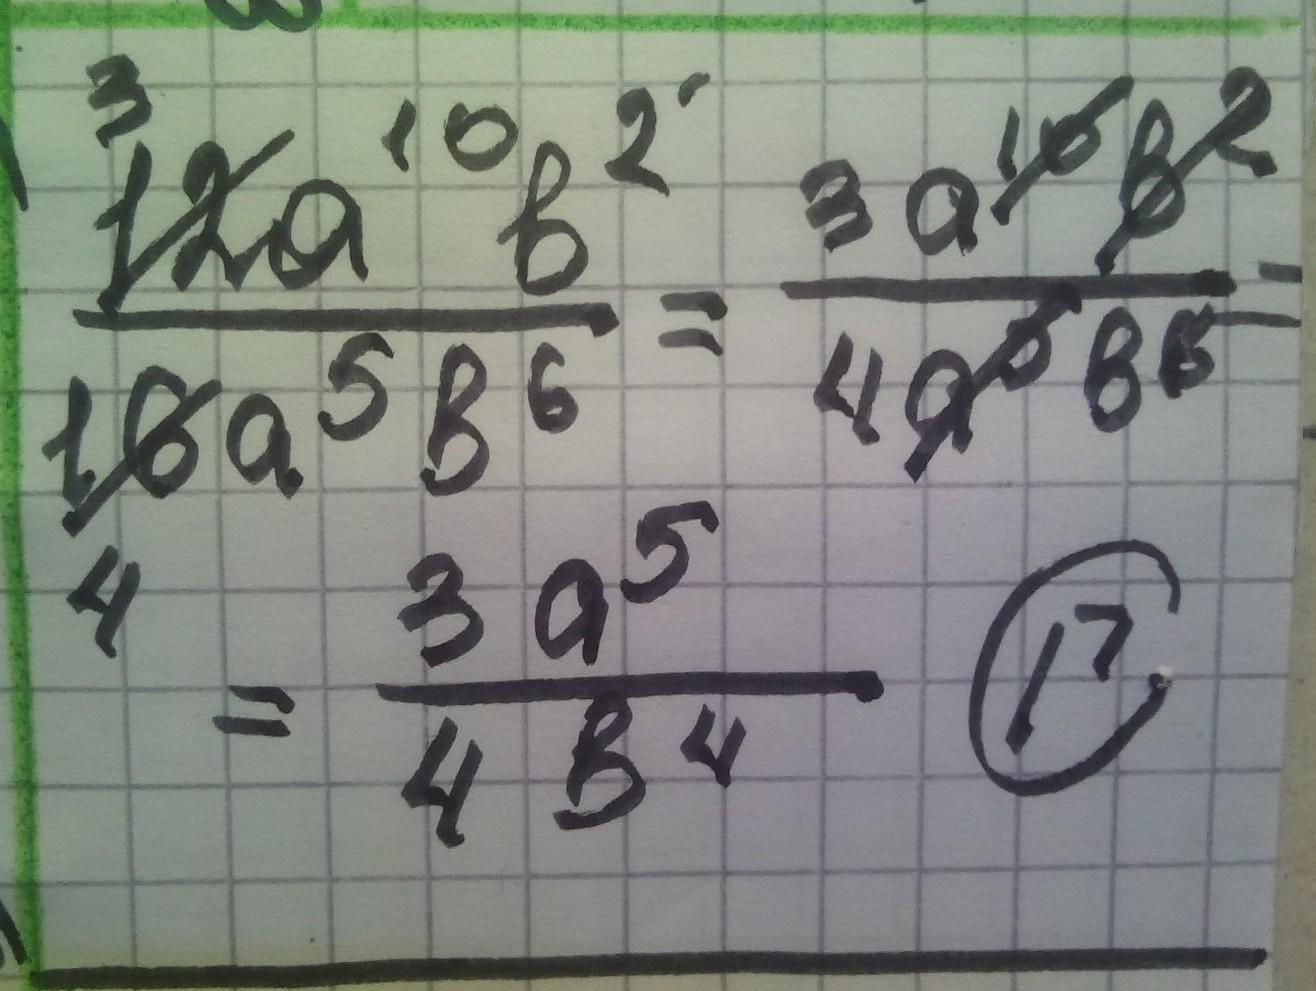 3
12a¹⁰b² / 16a⁵b⁶ = 3a¹⁰b² / 4a⁵b⁶ =
4
= 3a⁵ / 4b⁴
17